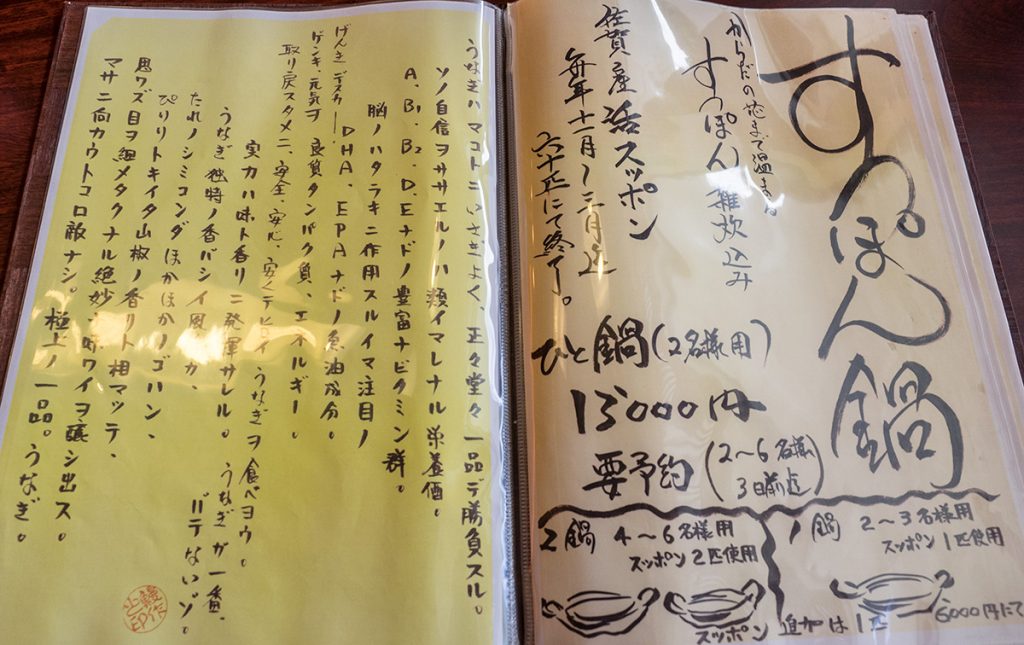 すっぽん鍋
からだの芯まで温まる
すっぽん雑炊込み
佐賀産活スッポン
毎年十一月〜二月迄
六十匹にて終了。
ひと鍋(2名様用)
15000円
要予約(2〜6名様 3日前迄)
1鍋 2〜3名様用
スッポン1匹使用
2鍋 4〜6名様用
スッポン2匹使用
スッポン追加は1匹
6000円にて
うなぎハマコトニいさぎよく、正々堂々一品デ勝負スル。
ソノ自信ヲササエルノハ類イマレナル栄養価。
A、B1、B2、D、EナドノO豊富ナビタミン群。
脳ノハタラキニ作用スルイマ注目ノ
DHA、EPAナドノ魚油成分。
良質タンパク質、エネルギー。
げんきデスカー
ゲンキ、元気ヲ
取リ戻スタメニ、安全、安心、安クテヒロイうなぎヲ食ベヨウ。
実力ハ味ト香リニ発揮サレル。うなぎが一番、
うなぎ独特ノ香バシイ風か、バテないゾ。
たれノシミコンダほかほかノゴハン、
ぴりリトキイタ山椒ノ香リト相マッテ、
思ワズ目ヲ細メタクナル絶妙ノ味ワイヲ醸シ出ス。
マサニ向カウトコロ敵ナシ。極上ノ一品。うなぎ。